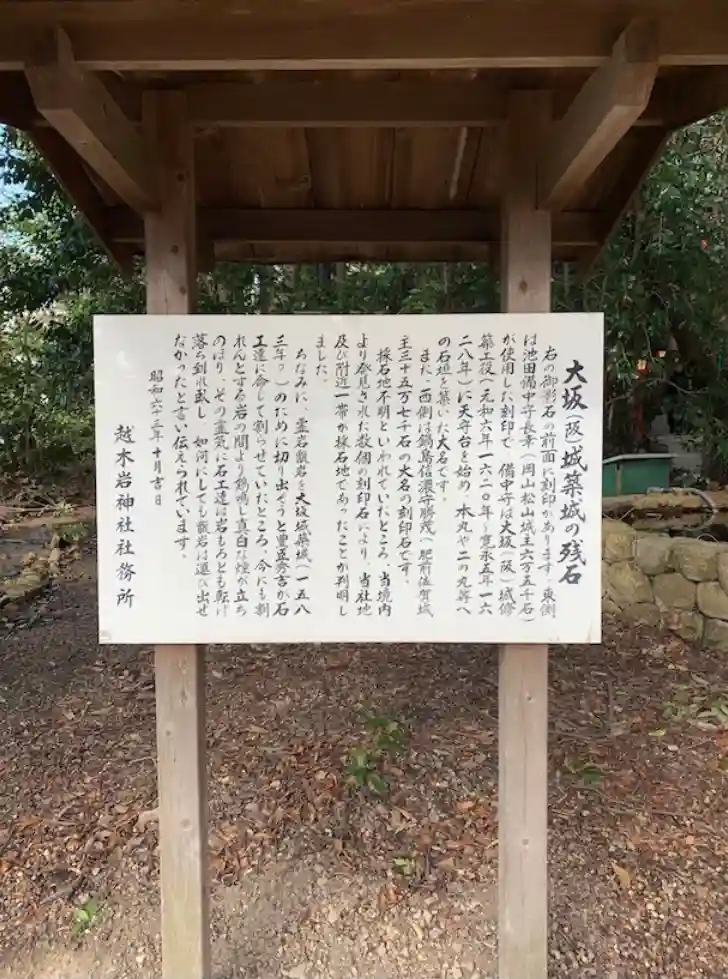 大坂(阪)城築城の残石
右の御影石の前面に刻印があります。東側
は池田備中守長幸(岡山松山城主六万五千石)
が使用した刻印で、備中守は大坂(阪)城修
築工役(元和六年一六二〇年〜寛永五年一六
二八年)に天守台を始め、本丸や二の丸等へ
の石垣を築いた大名です。
また、西側は鍋島信濃守勝茂(肥前佐賀城
主三十五万七千石の大名の刻印石です。
採石地不明といわれていたところ、当境内
より発見された数個の刻印石により、当社地
及び附近一帯が採石地であったことが判明し
ました。
ちなみに、霊岩甑岩を大坂城築城(一五八
三年?)のために切り出そうと豊臣秀吉が石
工達に命じて割らせていたところ、今にも割
れんとする岩の間より鶏鳴し真白な煙が立ち
のぼり、その霊気に石工達は岩もろとも転げ
落ち倒れ臥し、如何にしても甑岩は運び出せ
なかったと言い伝えられています。
昭和六十三年十月吉日
越木岩神社社務所